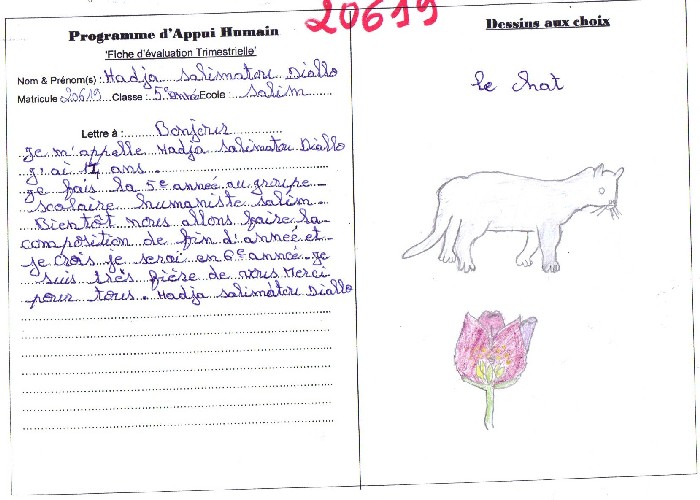 20619
Programme d'Appui Humain
'Fiche d'évaluation Trimestrielle'
Nom & Prénom(s) : Hadja Salimatou Diallo
Matricule 20619 Classe : 5e année Ecole : Salim
Lettre à : Bonjour
Je m'appelle Hadja Salimatou Diallo
J'ai 14 ans.
Je fais la 5e année au groupe
scolaire humaniste salim.
Bientôt nous allons faire la
composition de fin d'année et
je crois je serai en 6e année. Je
suis très fière de vous Merci
pour tous. Hadja Salimatou Diallo
Dessins aux choix
le chat